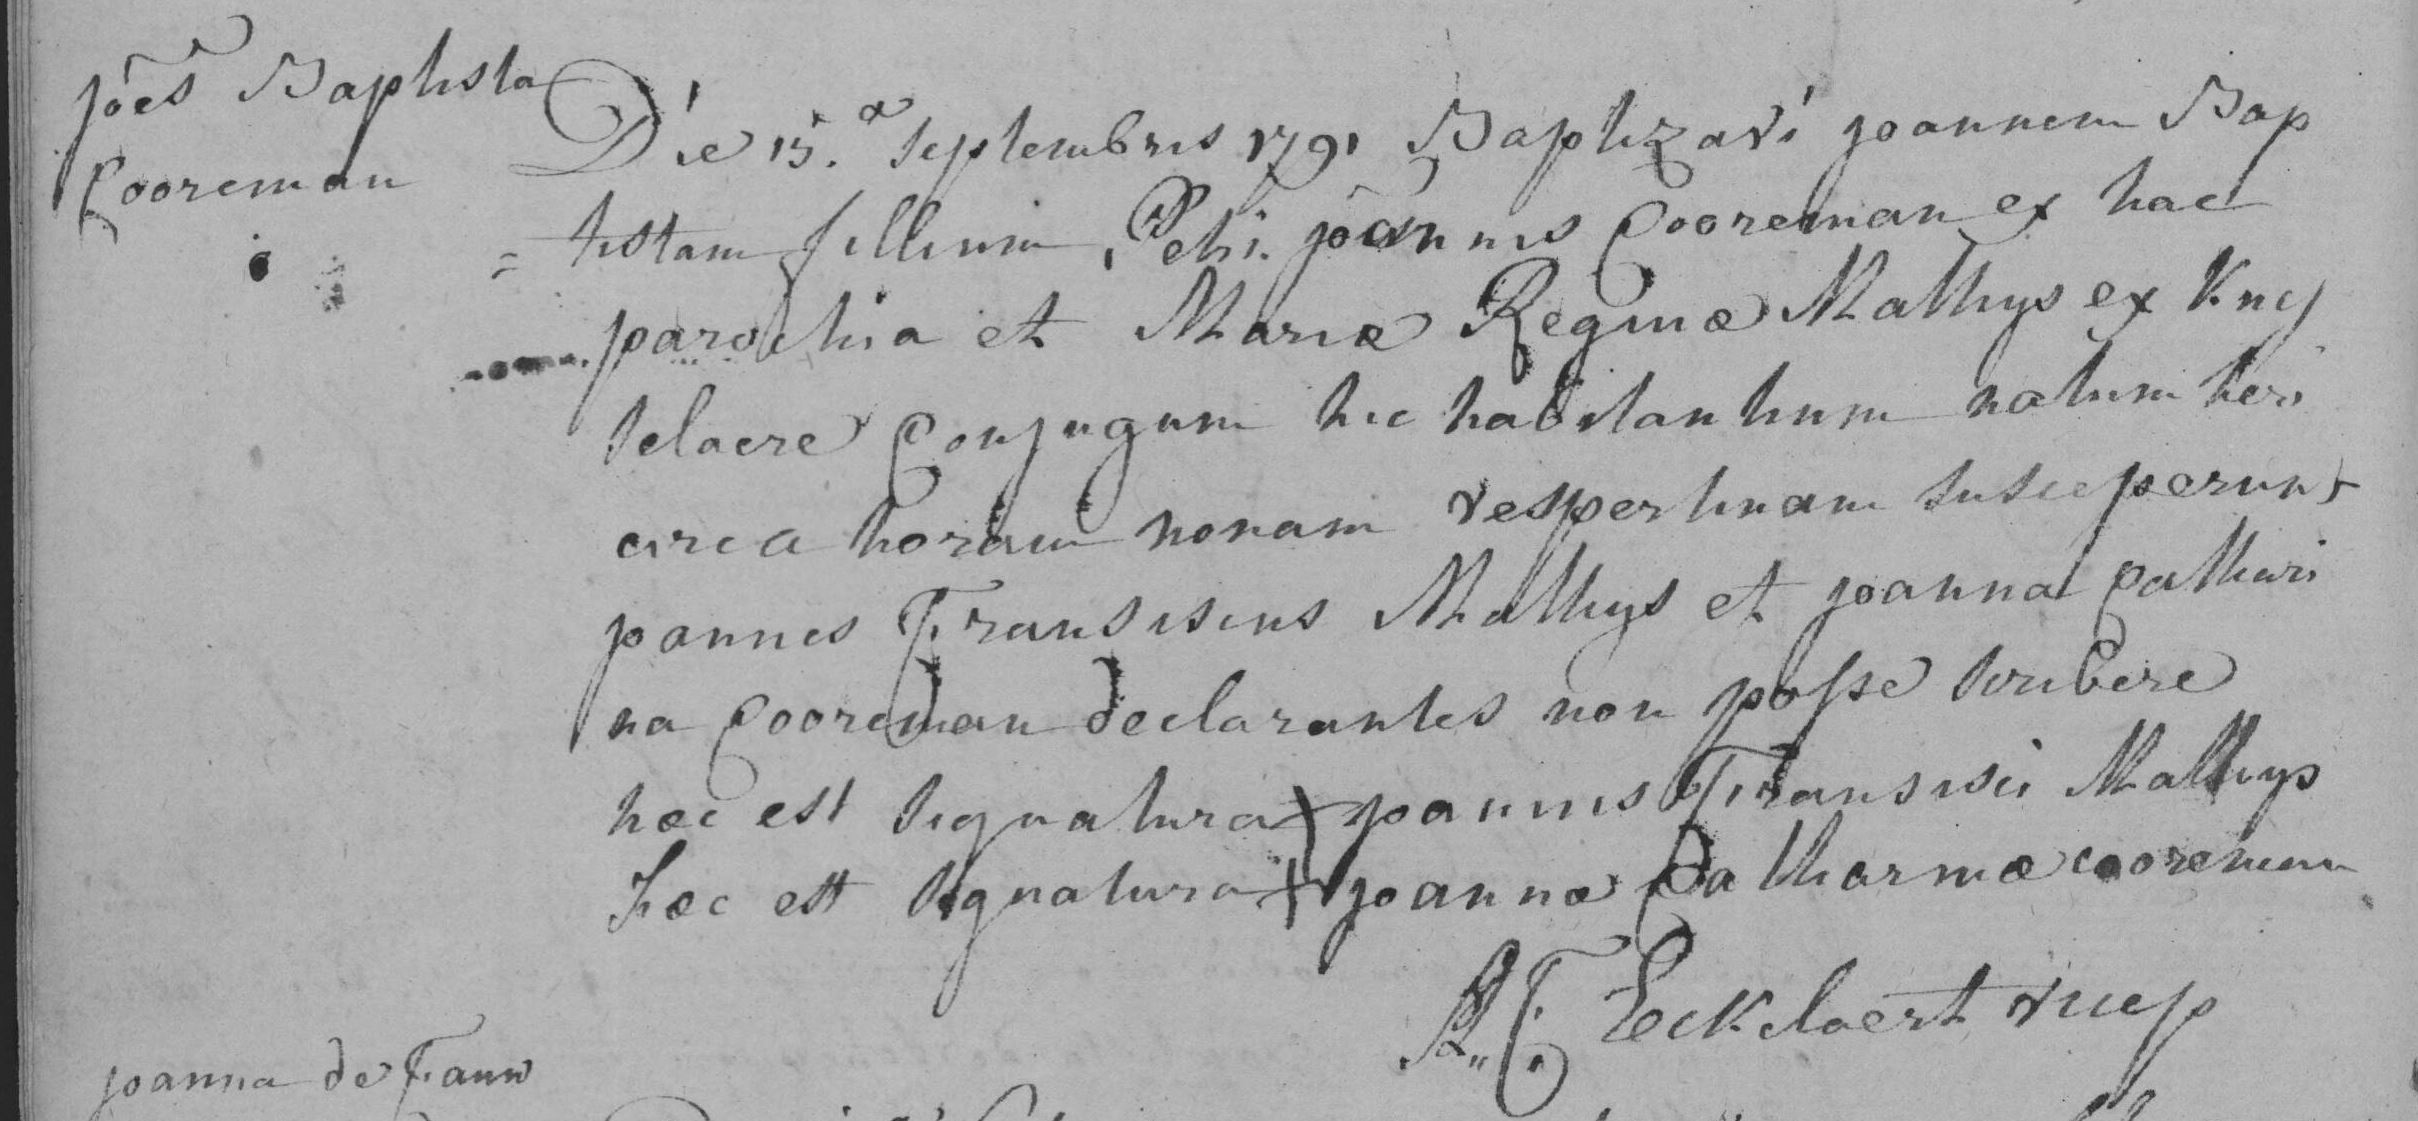 Joēs Baptista
Cooreman
Die 15.a Septembris 1791 Baptizavi joannem Bap
= tistam fillium Petri joannis Cooreman ex hac
parochia et Mariæ Reginæ Mathys ex Kny
selaere Conjugum hic habitantium natum heri
circa horam nonam vespertinam susceperunt
joannes Fransiscus Mathys et joanna Cathari
na Cooreman declarantes non posse scribere
hæc est signatura + joannis Fransisci Mathys
hæc est signatura + joannæ Catharinæ cooreman
Eeckelaert vicep
joanna de